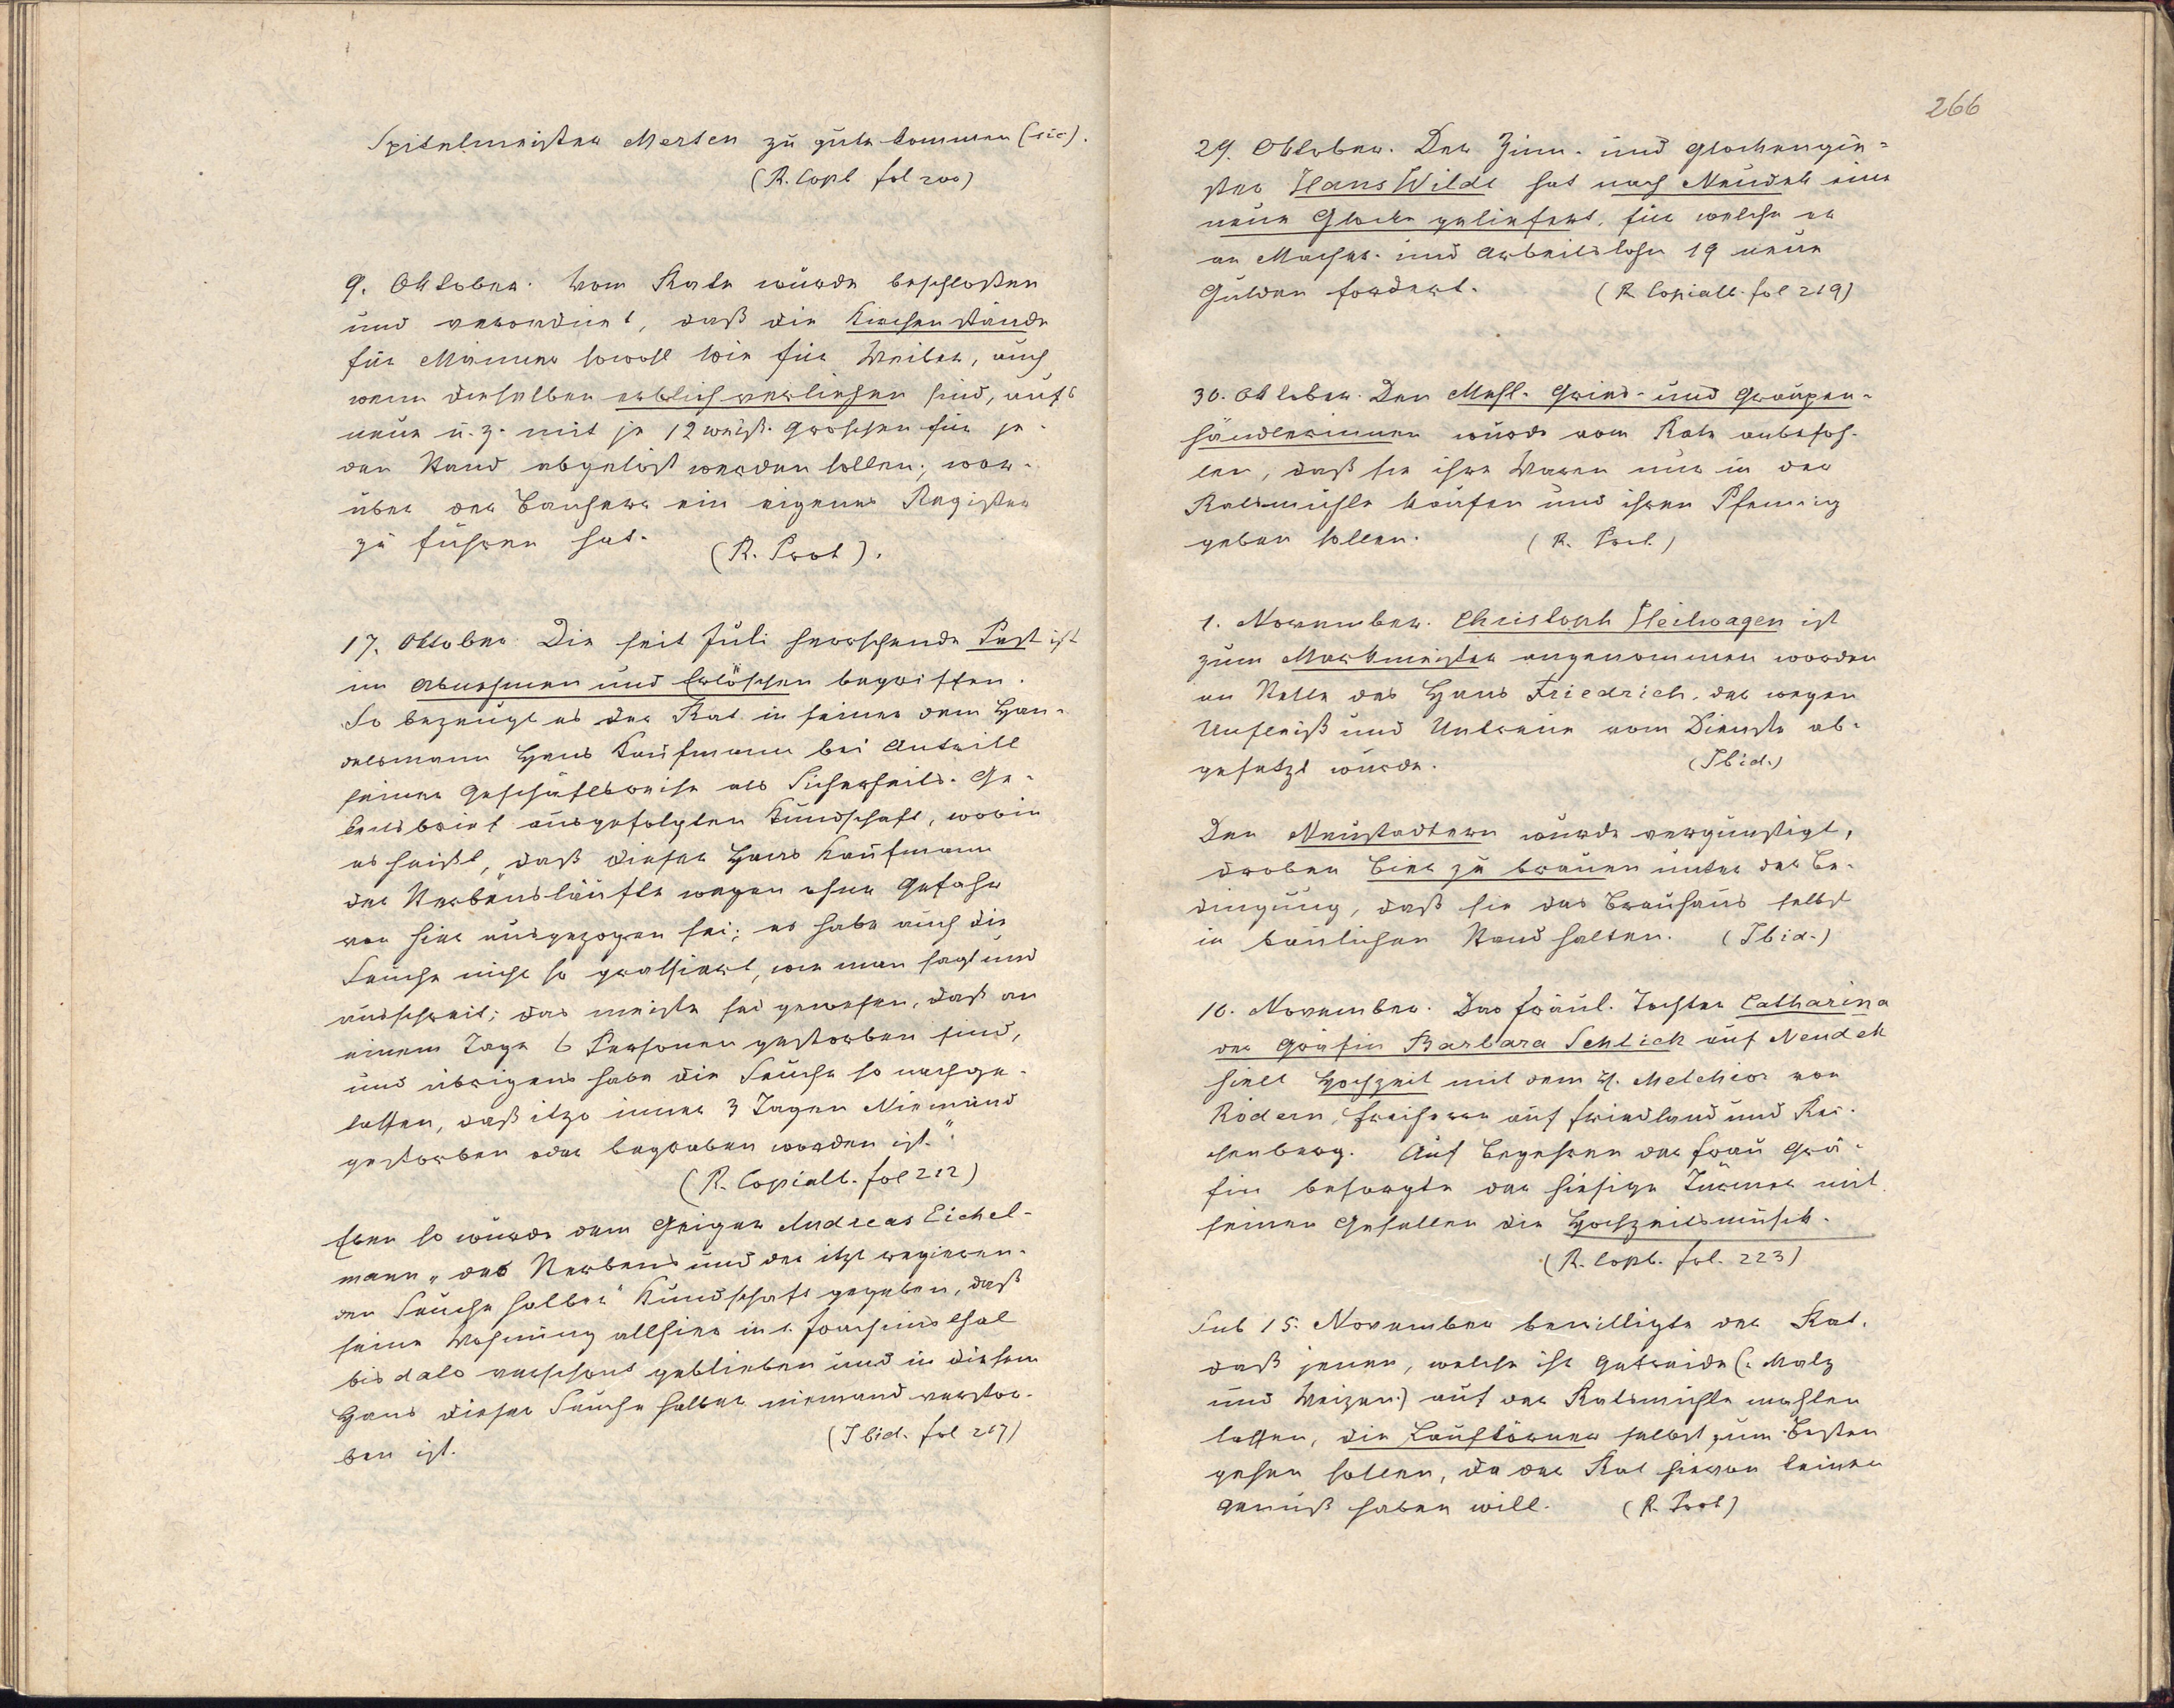 Spitelmeister Merten zu gute kommen (sic).
(R. Copb fol 200)
9. Oktober. Vom Rate wurde beschloßen
und verordnet, daß die Kirchenstände
für Männer sowohl wie für Weiber, auch
wenn dieselben erblich verliehen sind, aufs
neue u. z. mit je 12 weiß. Groschen für je-
den Stand abgelöst werden sollen; wor-
über der Bauherr ein eigenes Register
zu führen hat.
(R. Prot).
17. Oktober Die seit Juli herrschende Pest ist
im Abnehmen und Erlöschen begriffen.
So bezeugt es der Rat in seiner dem Han-
delsmann Hans Kaufmann bei Antritt
seiner Geschäftsreise als Sicherheits-Ge-
leitsbrief ausgefolgten Kundschaft, worin
es heißt, "daß dieser Hans Kaufmann
der Sterbensläufte wegen ohne Gefahr
von hier ausgezogen sei; es habe auch die
Seuche nicht so grassiert, wie man sagt und
ausschreit; das meiste sei gewesen, daß an
einem Tage 6 Personen gestorben sind,
und übrigens habe die Seuche so nachge-
lassen, daß itzo inner 3 Tagen Niemand
gestorben oder begraben worden ist."
(R. Copialb. fol 212)
Eben so wurde dem Geiger Andreas Eichel-
mann „des Sterbens und der itzt regieren-
den Seuche halber" Kundschaft gegeben, daß
seine Wohnung allhier in s. Joachimsthal
bis dato verschont geblieben und in diesem
Haus dieser Seuche halber niemand verstor-
ben ist.
(Ibid. fol 217)
266
29. Oktober. Der Zinn- und Glockengie-
ßer Hans Wildt hat nach Neudek eine
neue Glocke geliefert, für welche er
an Macher- und Arbeitslohn 19 neue
Gulden fordert.
(R. Copialb. fol 219)
30. Oktober. Den Mehl- Gries- und Graupen-
händlerinnen wurde vom Rate anbefoh-
len, daß sie ihre Waren nur in der
Ratsmühle kaufen und ihren Pfennig
geben sollen.
(R. Prot.)
1. November. Christoph Heilwagen ist
zum Markmeister angenommen worden
an Stelle des Hans Friedrich, der wegen
Unfleiß und Untreue vom Dienste ab-
gesetzt wurde.
(Ibid.)
Den Neustadtern wurde vergünstigt,
droben Bier zu brauen unter der Be-
dingung, daß sie das Brauhaus selbst
in baulichen Stand halten. (Ibid.)
10. November. Das Fräul. Tochter Catharina
der Gräfin Barbara Schlick auf Neudek
hielt Hochzeit mit dem H. Melchior von
Rödern, Freiherrn auf Friedland und Rei-
chenberg. Auf Begehren der Frau Grä-
fin besorgte der hiesige Türmer mit
seinen Gesellen die Hochzeitsmusik.
(R. Copb. fol. 223)
Sub 15. November bewilligte der Rat,
daß jenen, welche ihr Getreide (: Malz
und Weizen:) auf der Ratsmühle mahlen
lassen, die Laufkörner selbst zum Besten
gehen sollen, da der Rat hievon keinen
Genuß haben will.
(R. Prot)